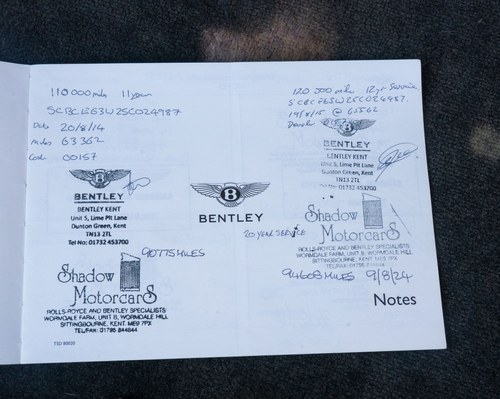 110 000 miles 11 year
SCBCB63W25C024987
Date 20/8/14
Miles 63362
Code 00157
BENTLEY
BENTLEY KENT
Unit 5, Lime Pit Lane
Dunton Green, Kent
TN13 2TL
Tel No: 01732 453700
90775 MILES
Shadow
MotorcarS
ROLLS-ROYCE AND BENTLEY SPECIALISTS
WORMDALE FARM, UNIT 8, WORMDALE HILL
SITTINGBOURNE, KENT. ME9 7PX
TEL/FAX: 01795 844844
B
BENTLEY
120 000 mile Service
19/8/15 @ 65562
BENTLEY
BENTLEY KENT
Unit 5, Lime Pit Lane
Dunton Green, Kent
TN13 2TL
Tel No: 01732 453700
20 YEAR SERVICE
Shadow
MotorcarS
ROLLS-ROYCE AND BENTLEY SPECIALISTS
WORMDALE FARM, UNIT 8, WORMDALE HILL
SITTINGBOURNE, KENT. ME9 7PX
94608 MILES 9/8/24
Notes